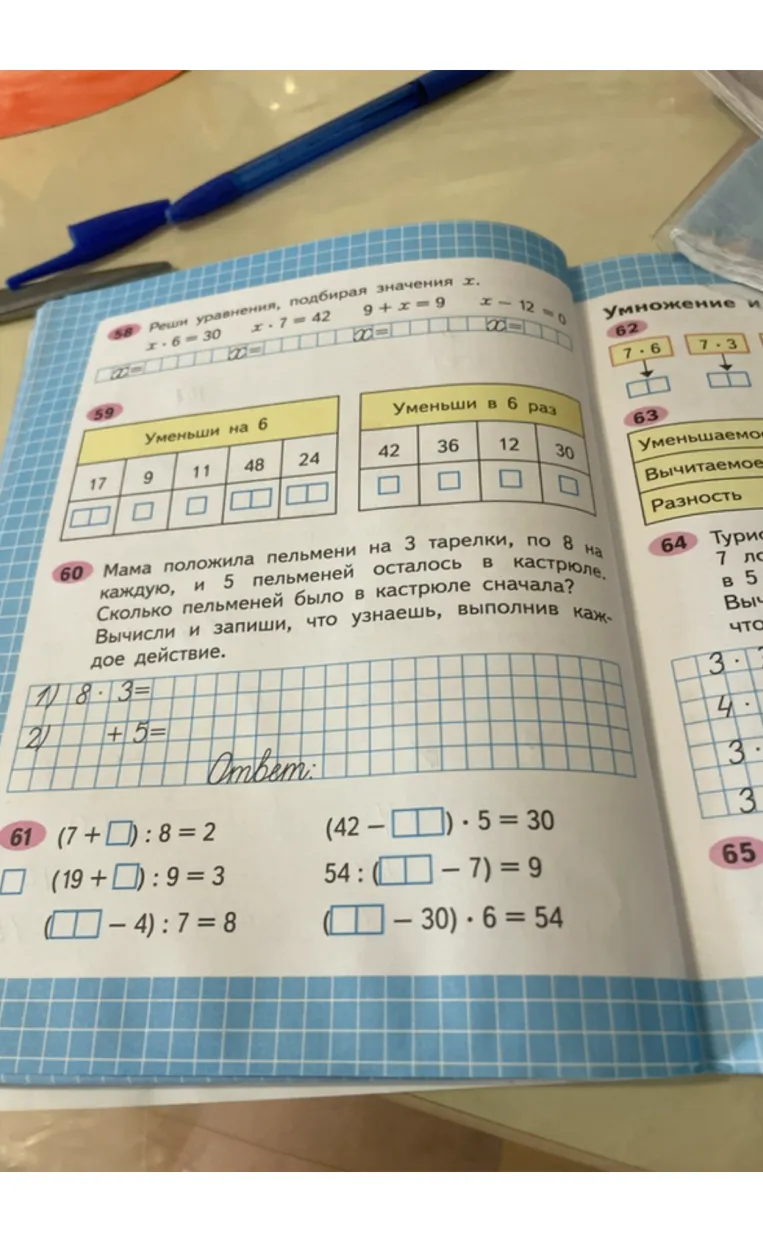 58 Реши уравнения, подбирая значения x.
x · 6 = 30 x · 7 = 42 9 + x = 9 x − 12 = 0
x= x= x= x=
59
Уменьши на 6
17 9 11 48 24
Уменьши в 6 раз
42 36 12 30
60 Мама положила пельмени на 3 тарелки, по 8 на
каждую, и 5 пельменей осталось в кастрюле.
Сколько пельменей было в кастрюле сначала?
Вычисли и запиши, что узнаешь, выполнив каж-
дое действие.
1) 8 · 3=
2) + 5=
Ответ:
61 (7 + □) : 8 = 2 (42 − □□) · 5 = 30
(19 + □) : 9 = 3 54 : (□□ − 7) = 9
(□□ − 4) : 7 = 8 (□□ − 30) · 6 = 54
Умножение и
62
7 · 6 7 · 3
63
Уменьшаемо
Вычитаемое
Разность
64 Турис
7 ло
в 5
Выч
что
3 ·
4 ·
3 ·
3
65